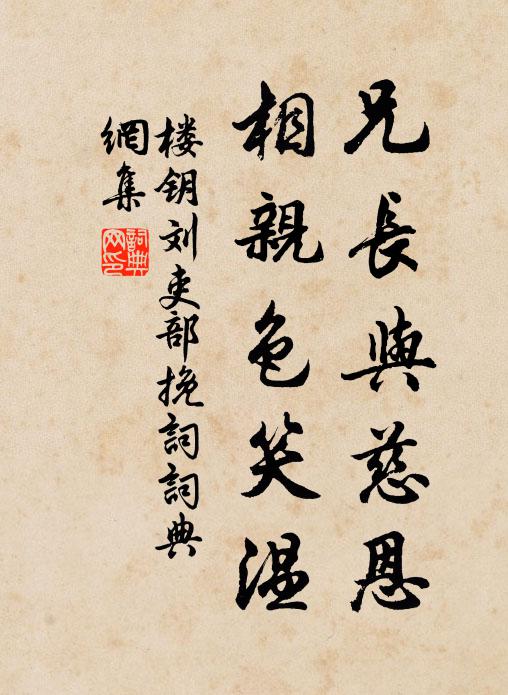 兄長與慈恩
相親色笑温
楼钥刘吏部挽詞詞典
網集
詞典網印